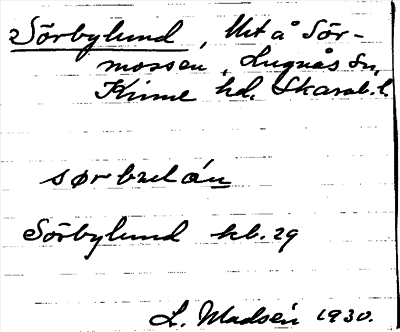 Sörbylund, Ut å Sör-
mossen, Lugnås sn,
Kinne hd. Skarab. l.
Sörbylund kb. 29
L. Madsén 1930.